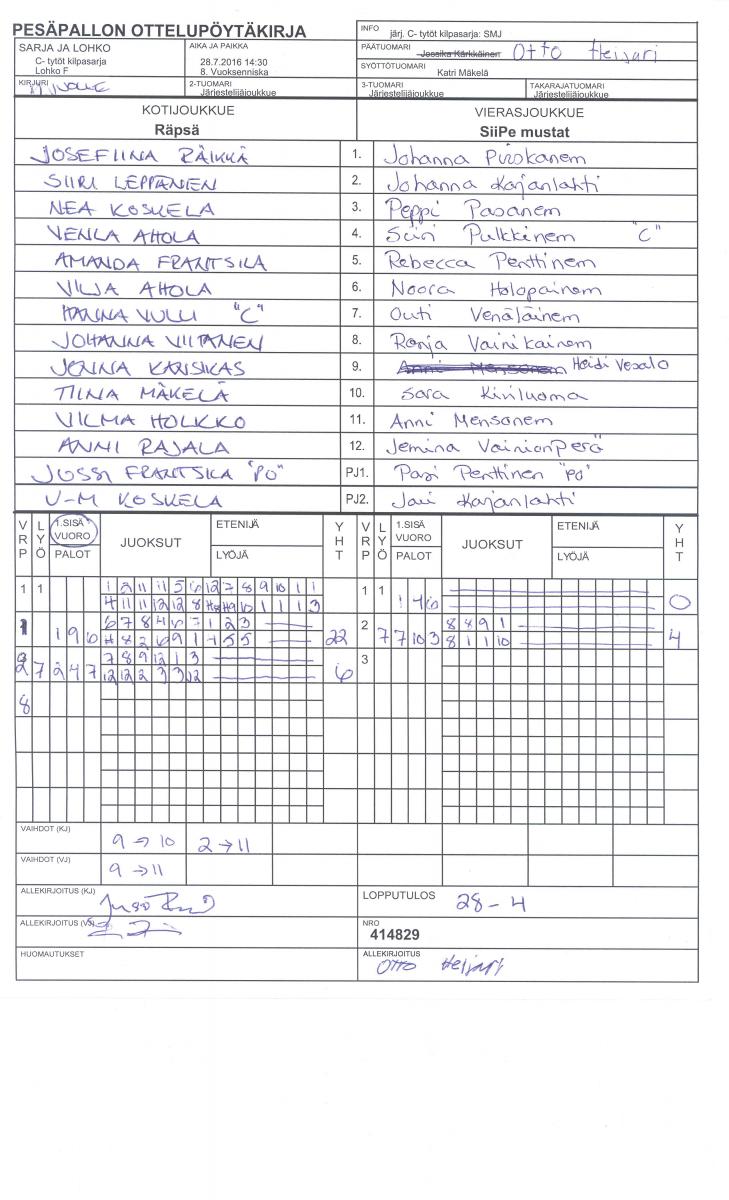 PESÄPALLON OTTELUPÖYTÄKIRJA
INFO järj. C- tytöt kilpasarja: SMJ
SARJA JA LOHKO
C- tytöt kilpasarja
Lohko F
AIKA JA PAIKKA
28.7.2016 14:30
8. Vuoksenniska
PÄÄTUOMARI Jessika Kärkkäinen Otto Heijari
SYÖTTÖTUOMARI
Katri Mäkelä
KIRJURI
2-TUOMARI
Järjestelijäjoukkue
3-TUOMARI
Järjestelijäjoukkue
TAKARAJATUOMARI
Järjestelijäjoukkue
KOTIJOUKKUE
Räpsä
VIERASJOUKKUE
SiiPe mustat
JOSEFIINA RÄIKKÄ 1. Johanna Piiskanem
SIIRI LEPPÄNEN 2. Johanna Karjanlahti
NEA KOSKELA 3. Peppi Pasanem
VENLA AHOLA 4. Siiri Pulkkinem "C"
AMANDA FRANTSILA 5. Rebecca Penttinem
VILJA AHOLA 6. Noora Holopainem
HANNA VULLI "C" 7. Outi Venäläinem
JOHANNA VIITANEN 8. Ronja Vainikainem
JENNA KANSIKAS 9. Anni Mensonem Heidi Vesalo
TIINA MÄKELÄ 10. Sara Kiviluoma
VILMA HOLKKO 11. Anni Mensonem
ANNI RAJALA 12. Jemina Vainionperä
JUSSI FRANTSILA "PO" PJ1. Pasi Penttinen "PO"
U-M KOSKELA PJ2. Jari Karjanlahti
VRP LYÖ 1.SISÄ VUORO PALOT JUOKSUT ETENIJÄ LYÖJÄ YHT
VRP LYÖ 1.SISÄ VUORO PALOT JUOKSUT ETENIJÄ LYÖJÄ YHT
1 1
1 1 1 4 6 0
1 9 6 22
2 7 7 10 3 8 8 9 1 4
8 1 1 10
2 7 2 4 7 7 8 9 12 1 3 6
12 12 2 3 3 12
3
8
VAIHDOT (KJ) 9 → 10 2 → 11
VAIHDOT (VJ) 9 → 11
ALLEKIRJOITUS (KJ)
LOPPUTULOS 28 - 4
ALLEKIRJOITUS (VJ)
NRO
414829
HUOMAUTUKSET
ALLEKIRJOITUS
Otto Heijari